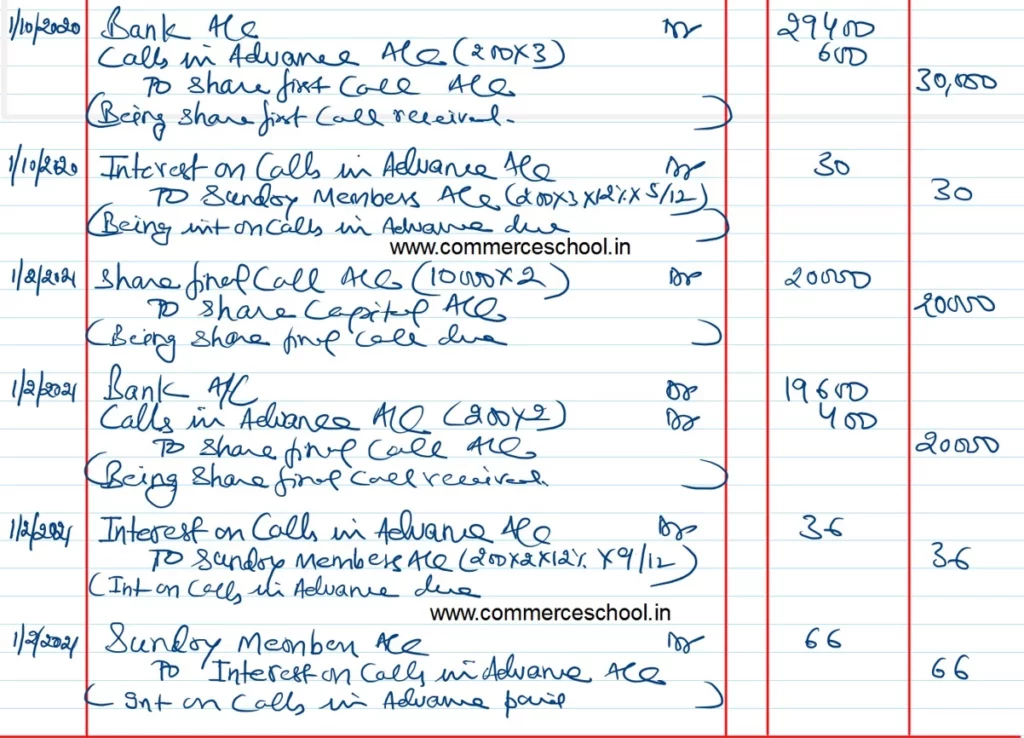 1/10/2020 Bank A/c Dr 29400
Calls in Advance A/c (200×3) 600
To Share first Call A/c 30,000
(Being share first Call received.)
1/10/2020 Interest on Calls in Advance A/c Dr 30
To Sundry Members A/c (200×3×12%×5/12) 30
(Being int on Calls in Advance due)
www.commerceschool.in
1/2/2021 Share final Call A/c (10000×2) Dr 20000
To Share Capital A/c 20000
(Being Share final Call due)
1/2/2021 Bank A/C Dr 19600
Calls in Advance A/c (200×2) Dr 400
To Share final Call A/c 20000
(Being Share final Call received.)
1/2/2021 Interest on Calls in Advance A/c Dr 36
To Sundry Members A/c (200×2×12% ×9/12) 36
(Int on Calls in Advance due
www.commerceschool.in
1/2/2021 Sundry Members A/c Dr 66
To Interest on Calls in Advance A/c 66
(Int on Calls in Advance paid)